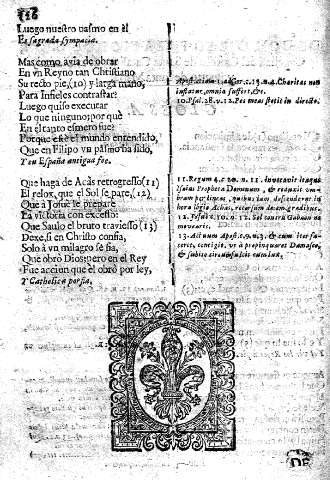 116
Luego nuestro pasmo en èl
Es sagrada sympacia.
Mas como, auia de obrar
En vn Reyno tan Christiano
Su recto pie,(10) y larga mano,
Para Infieles contrastar?
Luego quiso executar
Lo que ninguno; por què
En èl tanto esmero fue?
Porque estè el mundo entendido,
Que en Filipo vn pasmo ha sido,
Y en España antigua fee.
Que haga de Acàs retrogresso(11)
El relox, que el Sol se pare,(12)
Que à Josuè le prepare
La victoria con excesso:
Que Saulo el bruto trauiesso (13)
Dexe, si en Christo confia,
Solo à vn milagro se fia,
Que obrò Dios; pero en el Rey
Fue accion que èl obrò por ley,
Y Catholica porfia.
Apostol. 1. ad Cor. c. 13. v. 4. Charitas non
inflatur, omnia suffert, &c.
10. Psal. 25. v. 12. Pes meus stetit in directo.
11. Regum 4. c. 20. v. 11. invocavit itaque
Isaias Propheta Dominum, & reduxit um-
bram per lineas, quibus iam descenderat in
horologio Achaz, retrorsum decem gradibus.
12. Josue c. 10. v. 12. Sol contra Gabaon ne
movearis.
13. Act. num Apost. c. 9. v. 3. & cum iter fa-
ceret, contigit, vt à propinquaret Damasco,
& subito circumfulsit eum lux,
DE